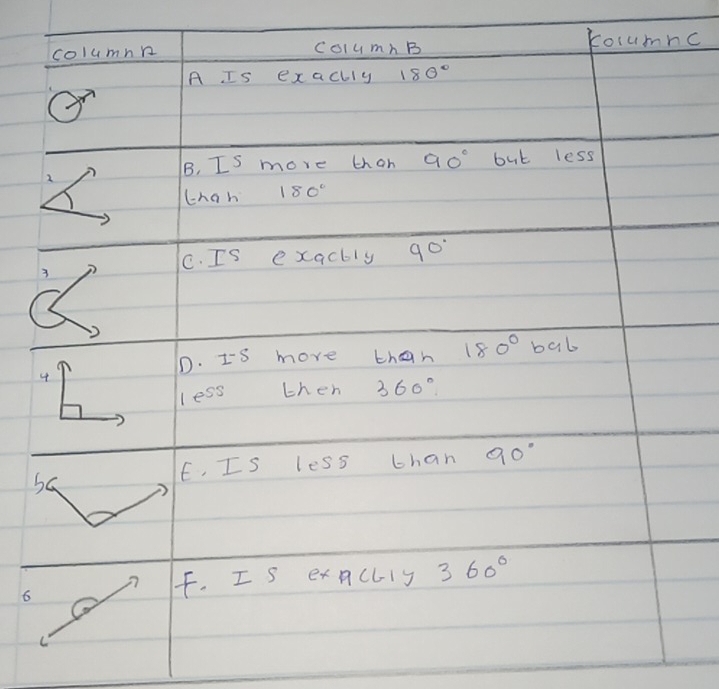 Column A Column B Column C
1 A Is exactly 180°
2 B. Is more than 90° but less
than 180°
3 C. Is exactly 90°
4 D. Is more than 180° but
less then 360°.
5 E. Is less than 90°
6 F. Is exactly 360°